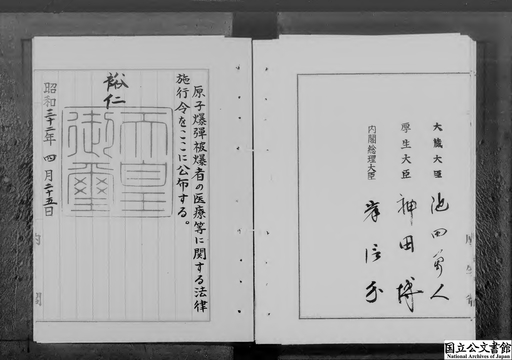 大蔵大臣 池田勇人
厚生大臣 神田博
内閣総理大臣 岸信介
原子爆弾被爆者の医療等に関する法律
施行令をここに公布する。
裕仁
天皇
御璽
昭和三十二年四月二十五日
内閣
国立公文書館
National Archives of Japan